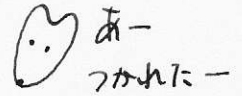 あー
つかれたー